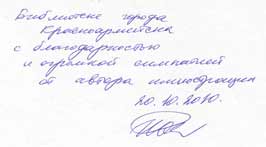 Библиотеке города
Красноармейска
с благодарностью
и огромной симпатией
от автора иллюстрации
20.10.2010.